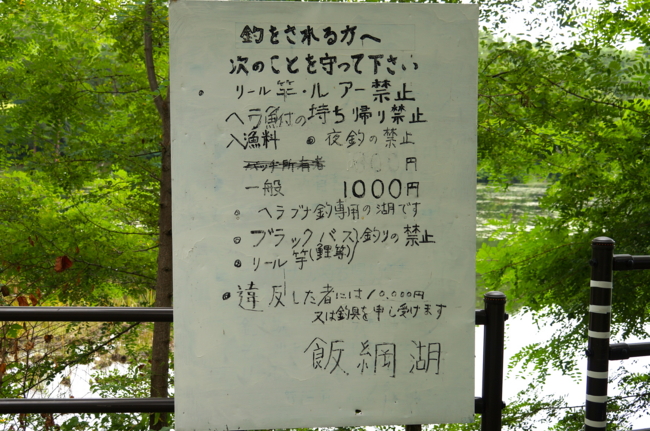 釣をされる方へ
次のことを守って下さい
。リール竿・ルアー禁止
ヘラ鮒の持ち帰り禁止
入漁料 。夜釣の禁止
円
一般 1000円
。ヘラブナ釣専用の湖です
。ブラックバス釣りの禁止
。リール竿(鯉等)
。違反した者には10,000円
又は釣具を申し受けます
飯綱湖